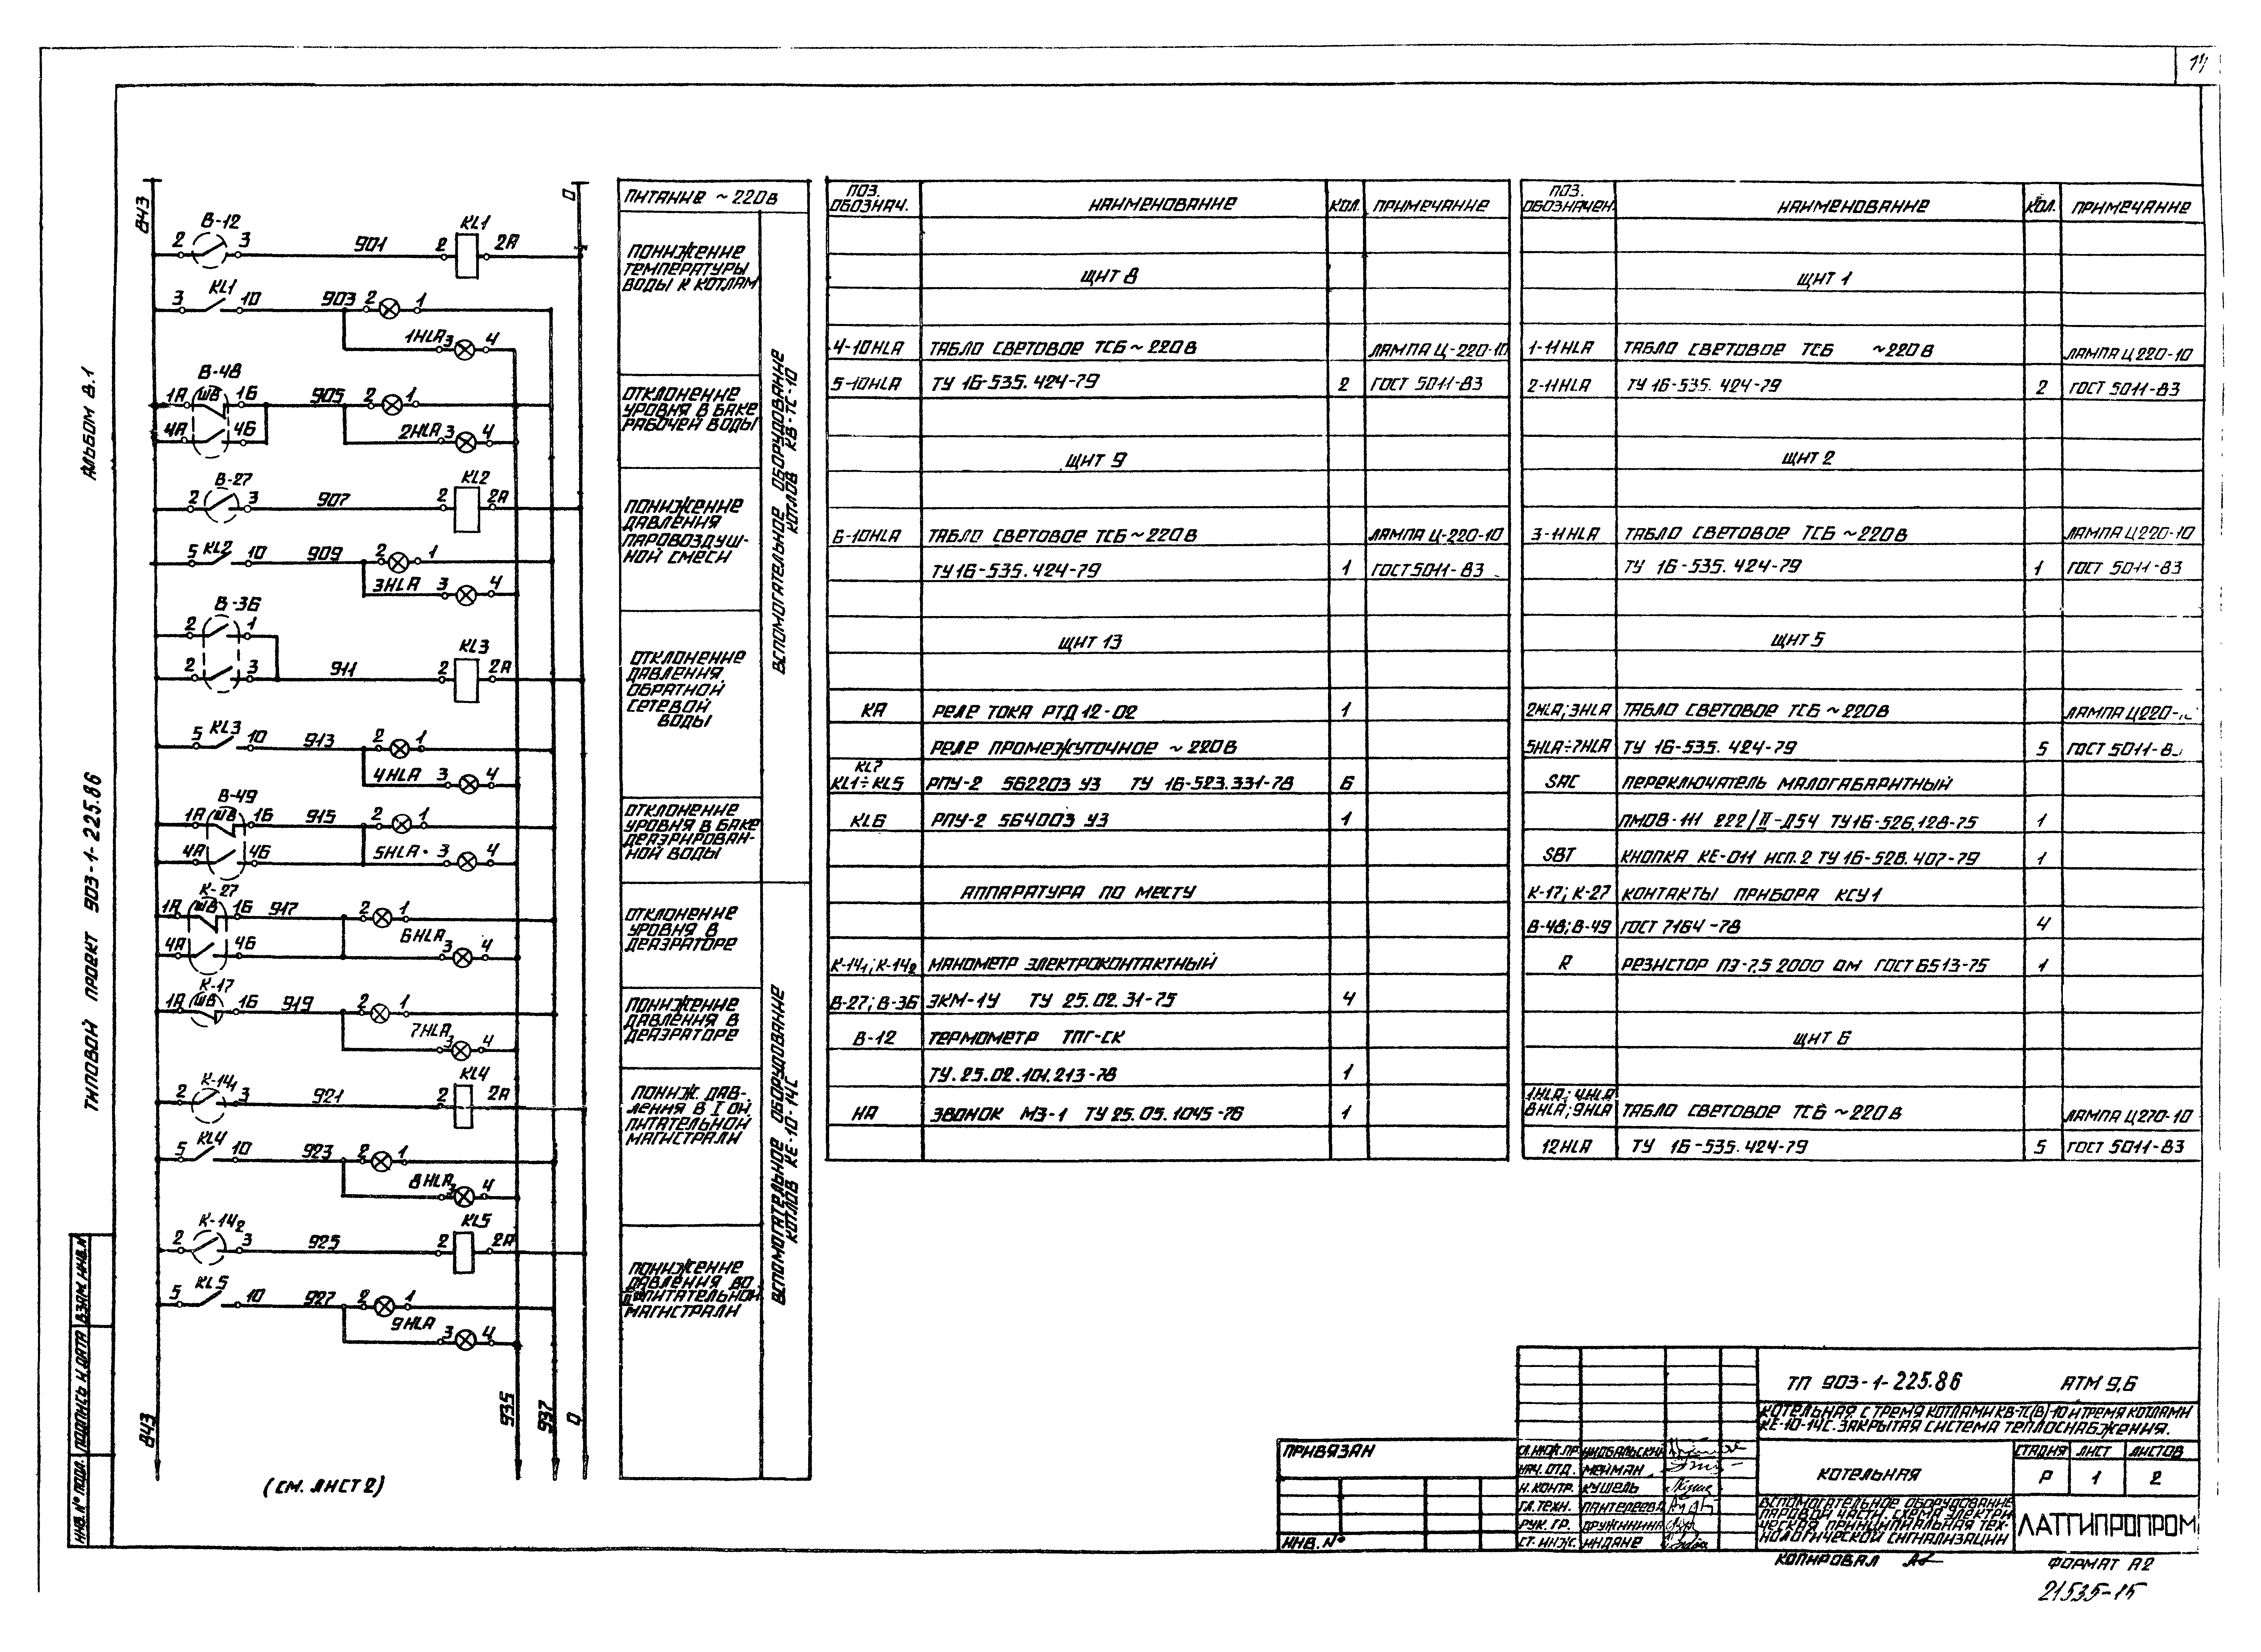 АЛЬБОМ 8.1
ТИПОВОЙ ПРОЕКТ 903-1-225.86
ИНВ. № ПОДЛ.
ПОДПИСЬ И ДАТА
ВЗАМ. ИНВ. №
843
0
В-12
2 3 901 2 KL1 2А
3 KL1 10 903 2 1
1HLA 3 4
В-48
1А ШВ 1Б 905 2 1
4А 4Б 2HLA 3 4
В-27
2 3 907 2 KL2 2А
5 KL2 10 909 2 1
3HLA 3 4
В-36
2 1
2 3 911 2 KL3 2А
5 KL3 10 913 2 1
4HLA 3 4
В-49
1А ШВ 1Б 915 2 1
4А 4Б 5HLA 3 4
К-27
1А ШВ 1Б 917 2 1
4А 4Б 6HLA 3 4
К-17
1А ШВ 1Б 919 2 1
7HLA 3 4
К-14₁
2 3 921 2 KL4 2А
5 KL4 10 923 2 1
8HLA 3 4
К-14₂
2 3 925 2 KL5 2А
5 KL5 10 927 2 1
9HLA 3 4
843
935
937
0
(СМ. ЛИСТ 2)
ПИТАНИЕ ~220В
ПОНИЖЕНИЕ
ТЕМПЕРАТУРЫ
ВОДЫ К КОТЛАМ
ОТКЛОНЕНИЕ
УРОВНЯ В БАКЕ
РАБОЧЕЙ ВОДЫ
ПОНИЖЕНИЕ
ДАВЛЕНИЯ
ПАРОВОЗДУШ-
НОЙ СМЕСИ
ОТКЛОНЕНИЕ
ДАВЛЕНИЯ
ОБРАТНОЙ
СЕТЕВОЙ
ВОДЫ
ОТКЛОНЕНИЕ
УРОВНЯ В БАКЕ
ДЕАЭРИРОВАН-
НОЙ ВОДЫ
ОТКЛОНЕНИЕ
УРОВНЯ В
ДЕАЭРАТОРЕ
ПОНИЖЕНИЕ
ДАВЛЕНИЯ В
ДЕАЭРАТОРЕ
ПОНИЖ. ДАВ-
ЛЕНИЯ В I ОЙ
ПИТАТЕЛЬНОЙ
МАГИСТРАЛИ
ПОНИЖЕНИЕ
ДАВЛЕНИЯ ВО
ПИТАТЕЛЬНОЙ
МАГИСТРАЛИ
ВСПОМОГАТЕЛЬНОЕ ОБОРУДОВАНИЕ
КОТЛОВ КВ-ТС-10
ВСПОМОГАТЕЛЬНОЕ ОБОРУДОВАНИЕ
КОТЛОВ КЕ-10-14С
ПОЗ. ОБОЗНАЧ. НАИМЕНОВАНИЕ КОЛ. ПРИМЕЧАНИЕ
ЩИТ 8
4-10HLA ТАБЛО СВЕТОВОЕ ТСБ ~220В ЛАМПА Ц-220-10
5-10HLA ТУ 16-535.424-79 2 ГОСТ 5011-83
ЩИТ 9
6-10HLA ТАБЛО СВЕТОВОЕ ТСБ ~220В ЛАМПА Ц-220-10
ТУ 16-535.424-79 1 ГОСТ 5011-83
ЩИТ 13
КА РЕЛЕ ТОКА РТД 12-02 1
РЕЛЕ ПРОМЕЖУТОЧНОЕ ~220В
KL7
KL1÷KL5 РПУ-2 562203 У3 ТУ 16-523.331-78 6
KL6 РПУ-2 564003 У3 1
АППАРАТУРА ПО МЕСТУ
К-14₁; К-14₂ МАНОМЕТР ЭЛЕКТРОКОНТАКТНЫЙ
В-27; В-36 ЭКМ-1У ТУ 25.02.31-75 4
В-12 ТЕРМОМЕТР ТПГ-СК
ТУ.25.02.101.213-78 1
НА ЗВОНОК МЗ-1 ТУ 25.05.1045-76 1
ПОЗ. ОБОЗНАЧЕН. НАИМЕНОВАНИЕ КОЛ. ПРИМЕЧАНИЕ
ЩИТ 1
1-11HLA ТАБЛО СВЕТОВОЕ ТСБ ~220В ЛАМПА Ц220-10
2-11HLA ТУ 16-535.424-79 2 ГОСТ 5011-83
ЩИТ 2
3-11HLA ТАБЛО СВЕТОВОЕ ТСБ ~220В ЛАМПА Ц220-10
ТУ 16-535.424-79 1 ГОСТ 5011-83
ЩИТ 5
2HLA; 3HLA ТАБЛО СВЕТОВОЕ ТСБ ~220В ЛАМПА
5HLA÷7HLA ТУ 16-535.424-79 5 ГОСТ
SAC ПЕРЕКЛЮЧАТЕЛЬ МАЛОГАБАРИТНЫЙ
ПМОВ-111 222/II-Д54 ТУ16-526.128-75 1
SBT КНОПКА КЕ-011 ИСП.2 ТУ 16-528.407-79 1
К-17; К-27 КОНТАКТЫ ПРИБОРА КСУ1
В-48; В-49 ГОСТ 7164-78 4
R РЕЗИСТОР ПЭ-7,5 2000 ОМ ГОСТ 6513-75 1
ЩИТ 6
1HLA; 4HLA
8HLA; 9HLA ТАБЛО СВЕТОВОЕ ТСБ ~220В ЛАМПА Ц220-10
12HLA ТУ 16-535.424-79 5 ГОСТ 5011-83
ПРИВЯЗАН
ИНВ. №
ГЛ. ИНЖ. ПР.
НАЧ. ОТД. МЕЙМАН
Н. КОНТР. КУШЕЛЬ
ГЛ. ТЕХН. ПАНТЕЛЕЕВА
РУК. ГР. ПРУЖИНИНА
СТ. ИНЖ. ИНДАНЕ
ТП 903-1-225.86 АТМ 9.6
КОТЕЛЬНАЯ С ТРЕМЯ КОТЛАМИ КВ-ТС(В)-10 И ТРЕМЯ КОТЛАМИ
КЕ-10-14С. ЗАКРЫТАЯ СИСТЕМА ТЕПЛОСНАБЖЕНИЯ.
КОТЕЛЬНАЯ
СТАДИЯ ЛИСТ ЛИСТОВ
Р 1 2
ВСПОМОГАТЕЛЬНОЕ ОБОРУДОВАНИЕ
ПАРОВОЙ ЧАСТИ. СХЕМА ЭЛЕКТРИ-
ЧЕСКАЯ ПРИНЦИПИАЛЬНАЯ ТЕХ-
НОЛОГИЧЕСКОЙ СИГНАЛИЗАЦИИ
ЛАТГИПРОПРОМ
КОПИРОВАЛ
ФОРМАТ А2
21535-15